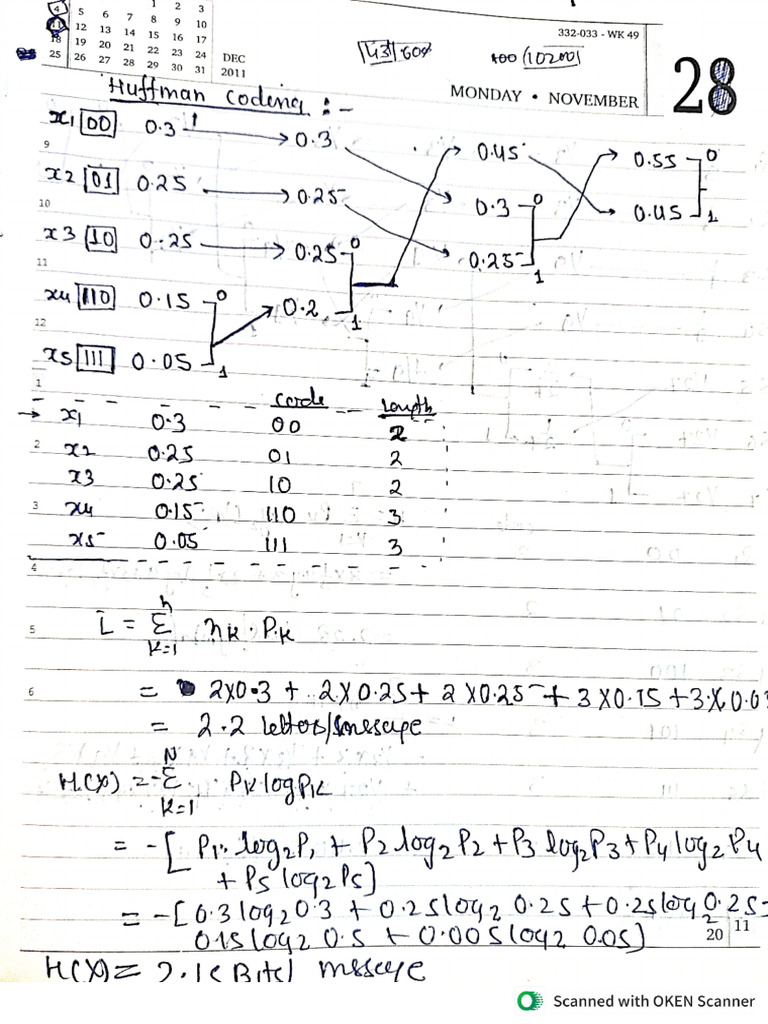 1 2 3
4 5 6 7 8 9 10
11 12 13 14 15 16 17
18 19 20 21 22 23 24
25 26 27 28 29 30 31
DEC
2011
332-033 - WK 49
10200
MONDAY • NOVEMBER
28
Huffman coding :-
x1 00 0.3 1 0.3 0.45 0.55 0
9
x2 01 0.25 0.25 0.3 0 0.45 1
10
x3 10 0.25 0.25 0 0.25 1
11
x4 110 0.15 0 0.2 1
12
x5 111 0.05 1
1
code Length
→ x1 0.3 00 2
2 x2 0.25 01 2
x3 0.25 10 2
3 x4 0.15 110 3
x5 0.05 111 3
4
5 L = Σ nk . Pk
n
k=1
6 = 2x0.3 + 2x0.25 + 2x0.25 + 3x0.15 + 3x0.0
= 2.2 letters/message
H(X) = -Σ Pk log Pk
N
k=1
= -[P1 . log2P1 + P2 log2P2 + P3 log2P3 + P4 log2P4
+ P5 log2P5]
= -[0.3 log2 0.3 + 0.25 log2 0.25 + 0.25 log2 0.25
0.15 log2 0.5 + 0.005 log2 0.05]
20 11
H(X) = Bits/ msseye
Scanned with OKEN Scanner